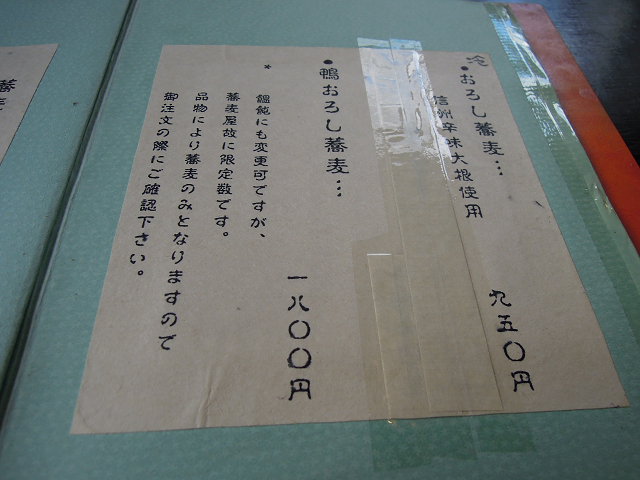 冷
•おろし蕎麦…
信州辛味大根使用
九五〇円
•鴨おろし蕎麦…
一八〇〇円
* 饂飩にも変更可ですが、
蕎麦屋故に限定数です。
品物により蕎麦のみとなりますので
御注文の際にご確認下さい。
蕎麦